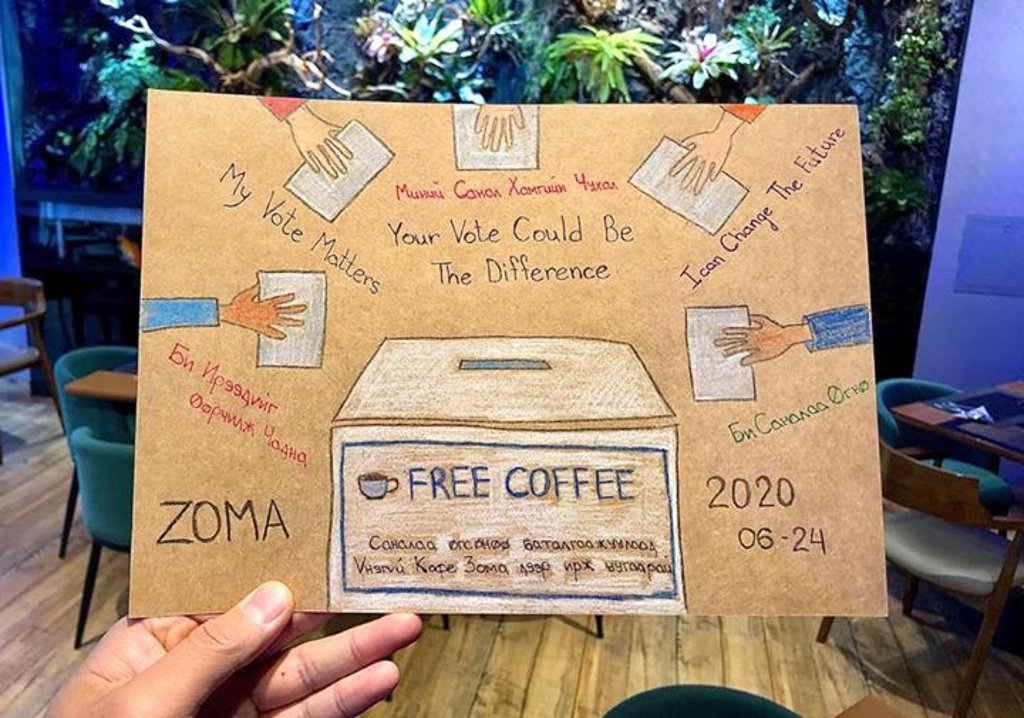 Миний Санал Хамгийн Чухал
My Vote Matters
Your Vote Could Be
The Difference
I can Change The Future
Би Ирээдүйг
Өөрчилж Чадна
Би Саналаа Өгнө
ZOMA
FREE COFFEE
Саналаа өгсөнөө баталгаажуулаад
Үнэгүй Кофе Зома дээр ирж уугаарай
2020
06-24